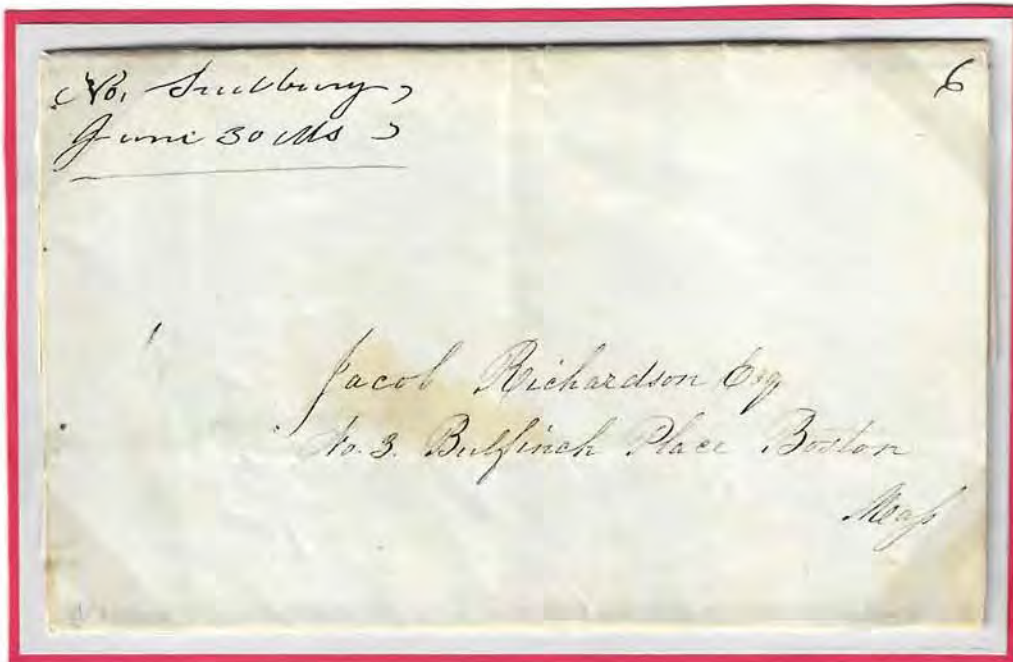 No. Sudbury
6
June 30 Ms
Jacob Richardson Esq
No. 3. Bulfinch Place Boston
Mass